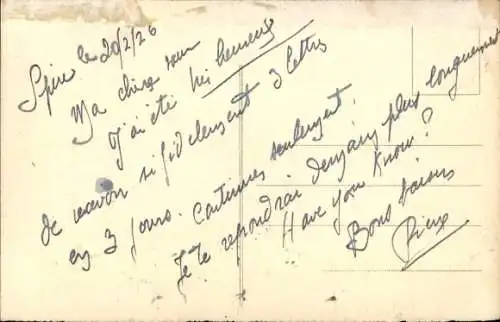 Spire le 20/2/26
Ma chère sœur
J'ai été très heureux
de recevoir si fidèlement 3 lettres
en 3 jours. Continues seulement.
Je te repondrai demain plus longuement
Have you Know?
Bons baisers